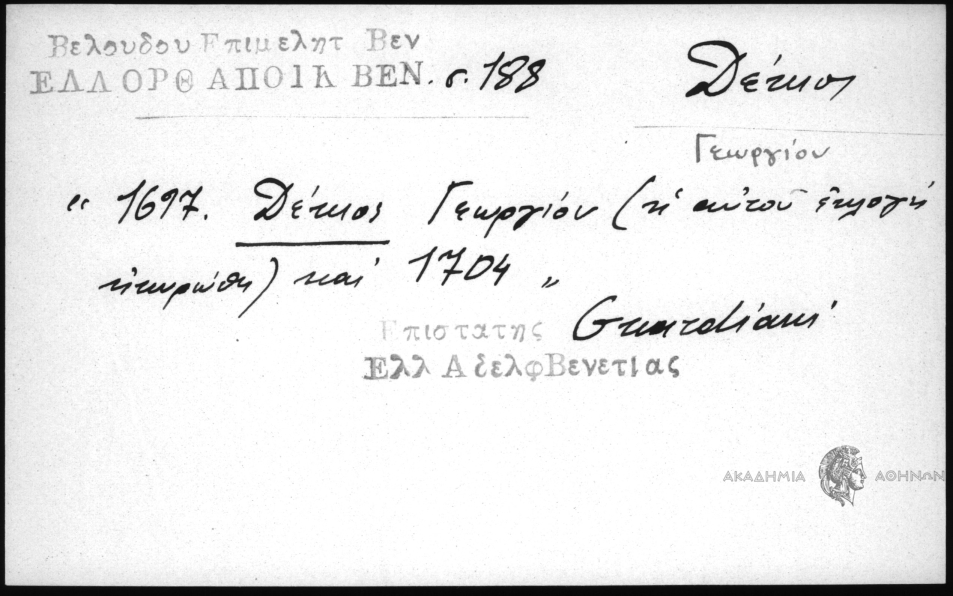 Βελουδου Επιμελητ Βεν
ΕΛΛ ΟΡΘ ΑΠΟΙΚ ΒΕΝ. σ. 188
Δέκιος
Γεωργίου
“ 1697. Δέκιος Γεωργίου (ἡ αὐτοῦ ἐκλογὴ
ἠκυρώθη) καὶ 1704 „
Επιστατης Guardiani
Ελλ Αδελφ Βενετίας
ΑΚΑΔΗΜΙΑ ΑΘΗΝΩΝ